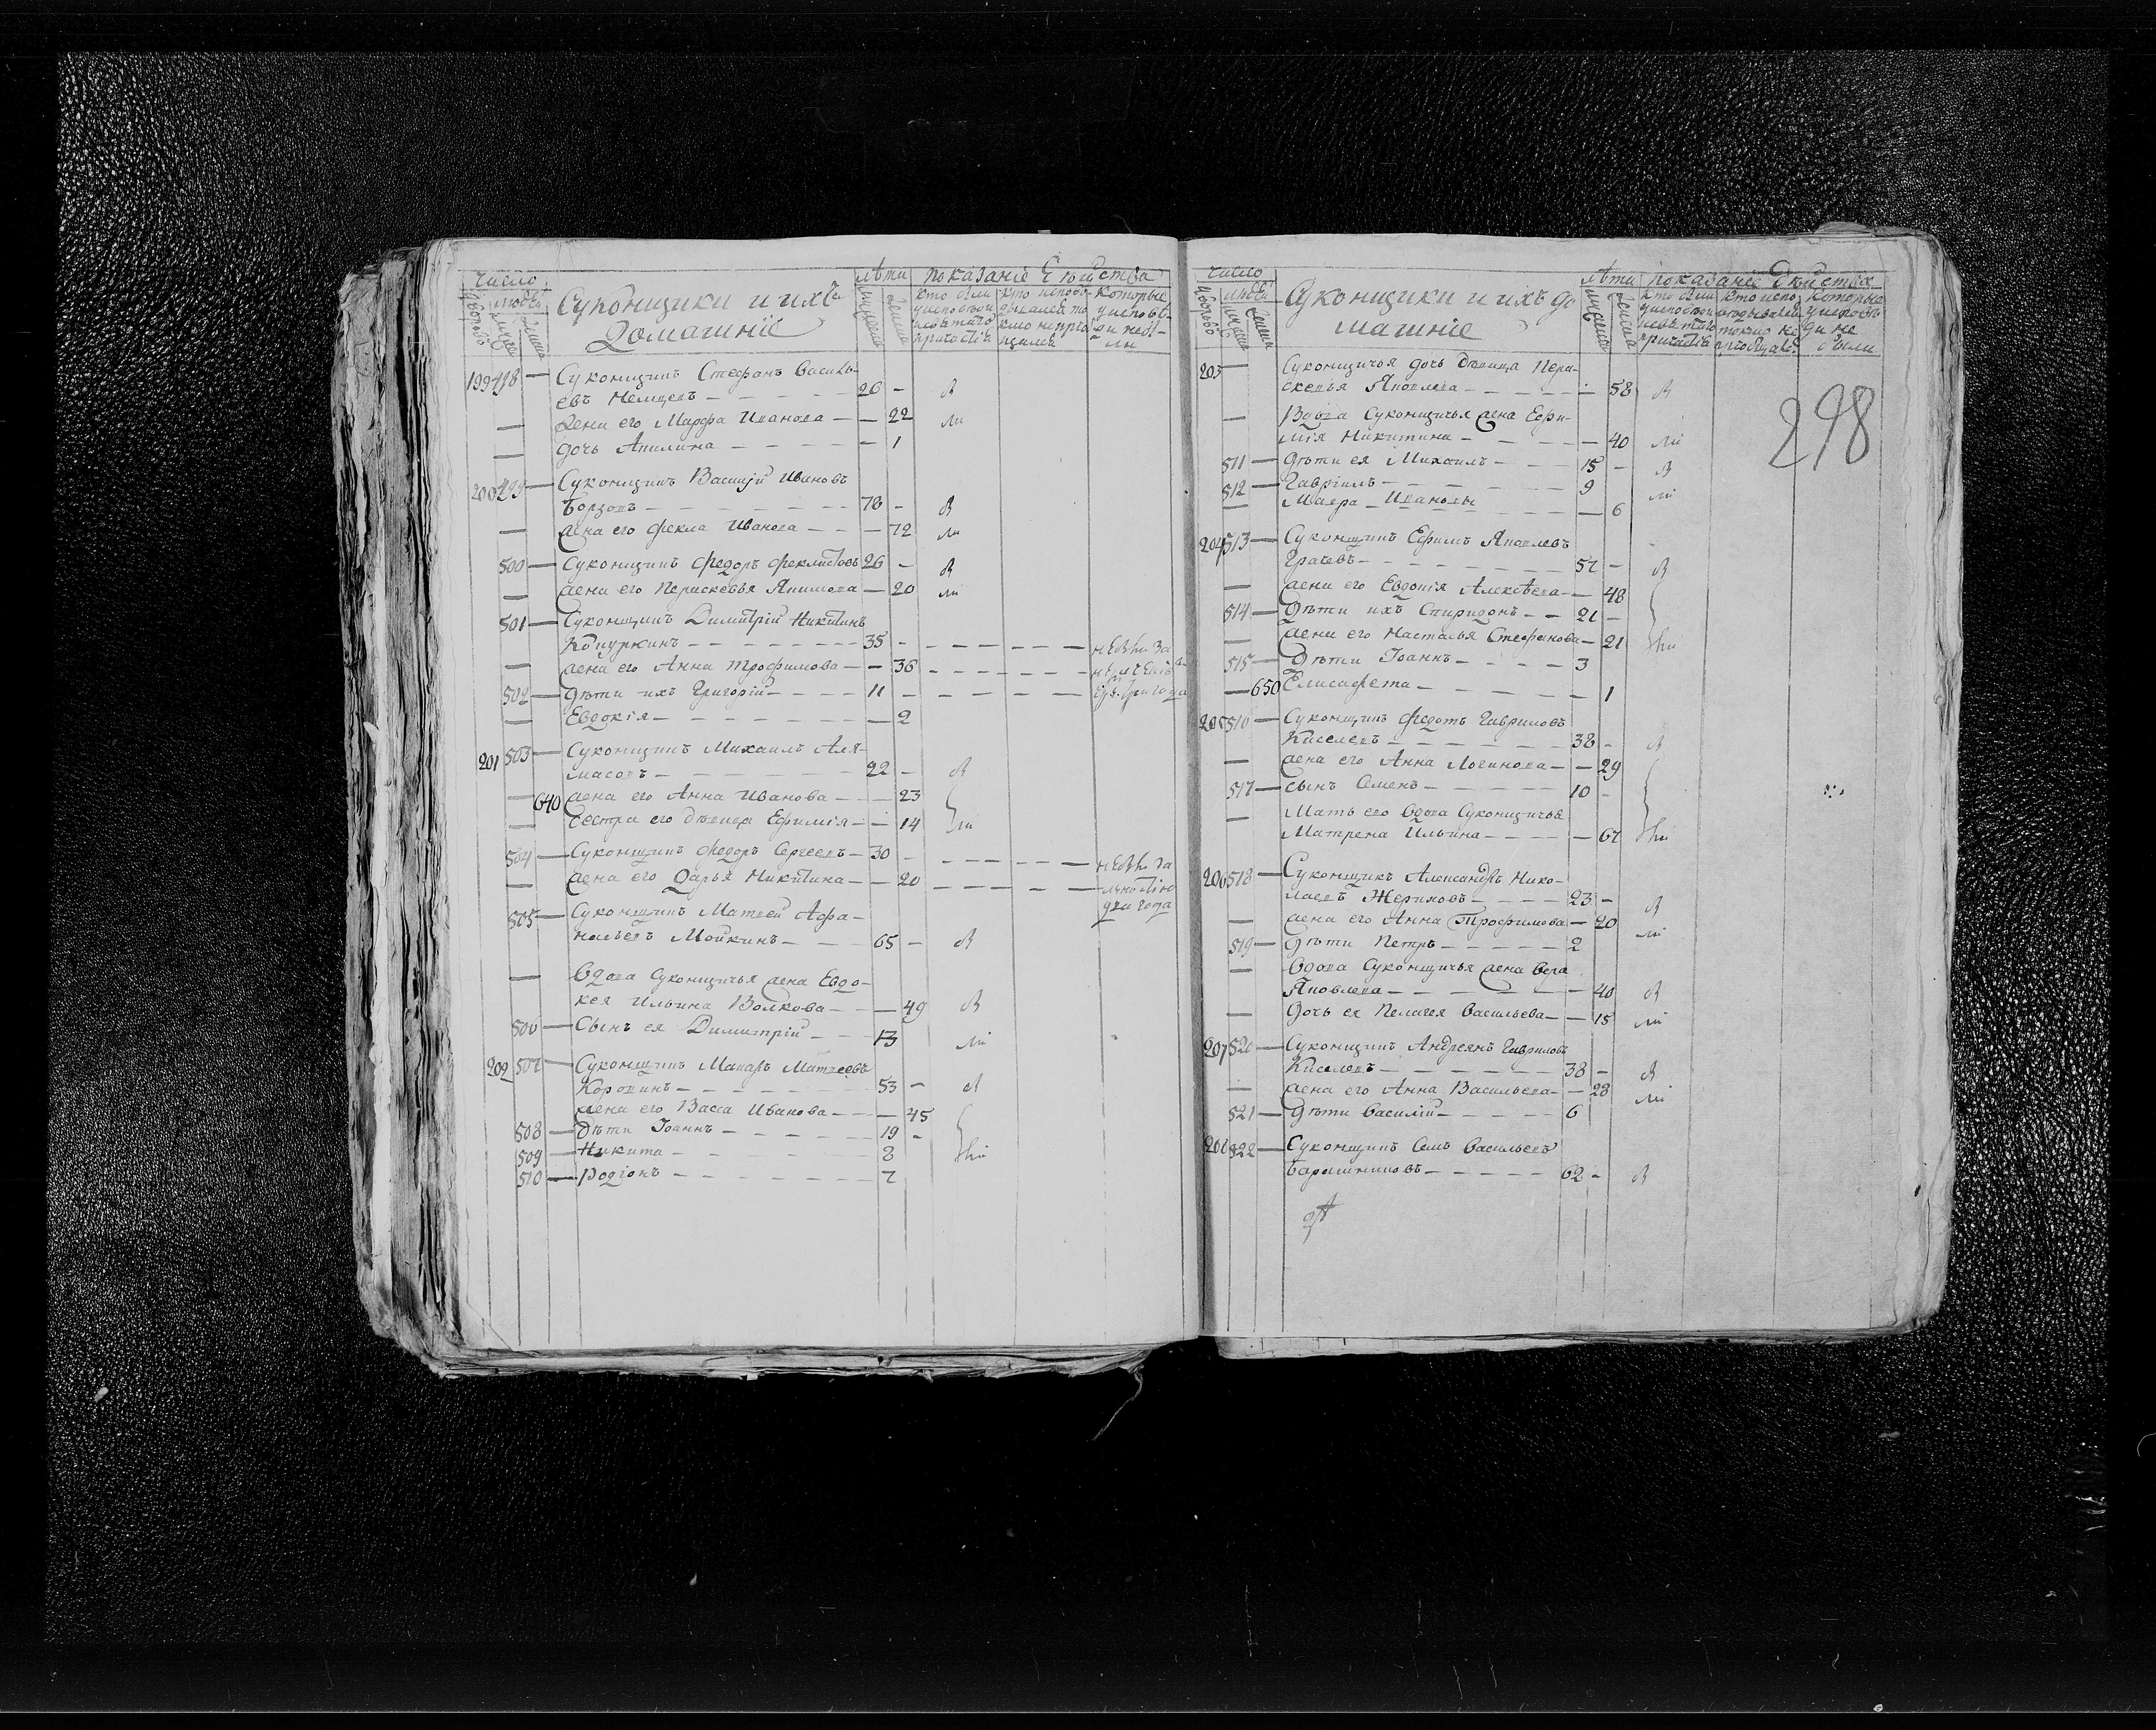 число
людей
лѣта
показаніе Дѣйства
Суконщики и ихъ
Домашніе
кто были
у исповѣди
и свѣтаго
причастія
кто исповѣ-
дывался то
кмо не прич
щался
которые
у исповѣ-
ди не бы-
ли
199 498 — Суконщикъ Стефанъ Василь-
евъ Немцевъ — 26 —
— жена его Марфа Иванова — — 22
— дочь Акилина — — 1
200 499 — Суконщикъ Василій Ивановъ
Борзовъ — 78 —
— жена его Фекла Иванова — — 72
500 — Суконщикъ Федоръ Феклистовъ 26 —
— жена его Параскевья Якимова — 20
501 — Суконщикъ Димитрій Никитинъ
— 35 —
— жена его Анна Трофимова — — 36
502 — Дѣти ихъ Григорій — 11 —
— Евдокія — — 2
201 503 — Суконщикъ Михаилъ Аля-
масовъ — 22 —
— 640 жена его Анна Иванова — — 23
— Сестра его Дѣвица Ефимія — — 14
504 — Суконщикъ Федоръ Сергеевъ — 30 —
— жена его Дарья Никитина — — 20
два года
505 — Суконщикъ Матвей Афа-
насьевъ Мойкинъ — 65 —
— Вдова Суконщичья жена Евдо-
кея Ильина Волкова — — 49
506 — Сынъ ея Димитрій — 13
202 507 — Суконщикъ Макаръ Матвеевъ
Коровинъ — 53 —
жена его Васса Иванова — — 45
508 — Дѣти Іоаннъ — 19 —
509 — Никита — 8
510 — Родіонъ — 7
число
людей
лѣта
показаніе Дѣйства
Суконщики и ихъ до
машніе
кто были
у исповѣди
и свѣтаго
причастія
кто испо
ведывался
токмо не
причащался
которые
у исповѣ
ди не
были
298
203 — Суконщичья дочь Дѣвица Пара-
скевья Яковлева — — 58
— Вдова Суконщичья жена Ефи-
мія Никитина — — 40
511 — Дѣти ея Михаилъ — 15 —
512 — Гавріилъ — 9
— Мавра Ивановы — 6
204 513 — Суконщикъ Ефимъ Яковлевъ
Грачевъ — 57 —
— жена его Евдокія Алексѣева — 48
514 — Дѣти ихъ Спиридонъ — 21 —
— жена его Настасья Стефанова — 21
515 — Дѣти Іоаннъ — 3
— 650 Елисафета — — 1
205 516 — Суконщикъ Федотъ Гавриловъ
Киселевъ — 38 —
— жена его Анна Логинова — — 29
517 — сынъ Семенъ — 10 —
— Мать его вдова Суконщичья
Матрена Ильина — — 67
206 518 — Суконщикъ Александръ Нико-
лаевъ Жериховъ — 23 —
— жена его Анна Трофимова — 20
519 — Дѣти Петръ — 2
— Вдова Суконщичья жена Вера
Яковлева — — 40
— Дочь ея Пелагея Васильева — — 15
207 520 — Суконщикъ Андреянъ Гавриловъ
Киселевъ — 38 —
— жена его Анна Васильева — — 28
521 — Дѣти Василій — 6
208 522 — Суконщикъ Васильевъ
Барашниковъ — 62 —